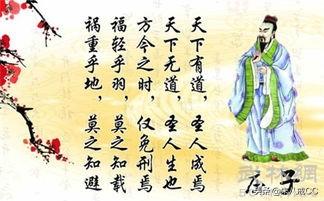 天下有道，圣人成焉
天下无道，圣人生也
方今之时，仅免刑焉
福轻乎羽，莫之知载
祸重乎地，莫之知避
庄子
武林網